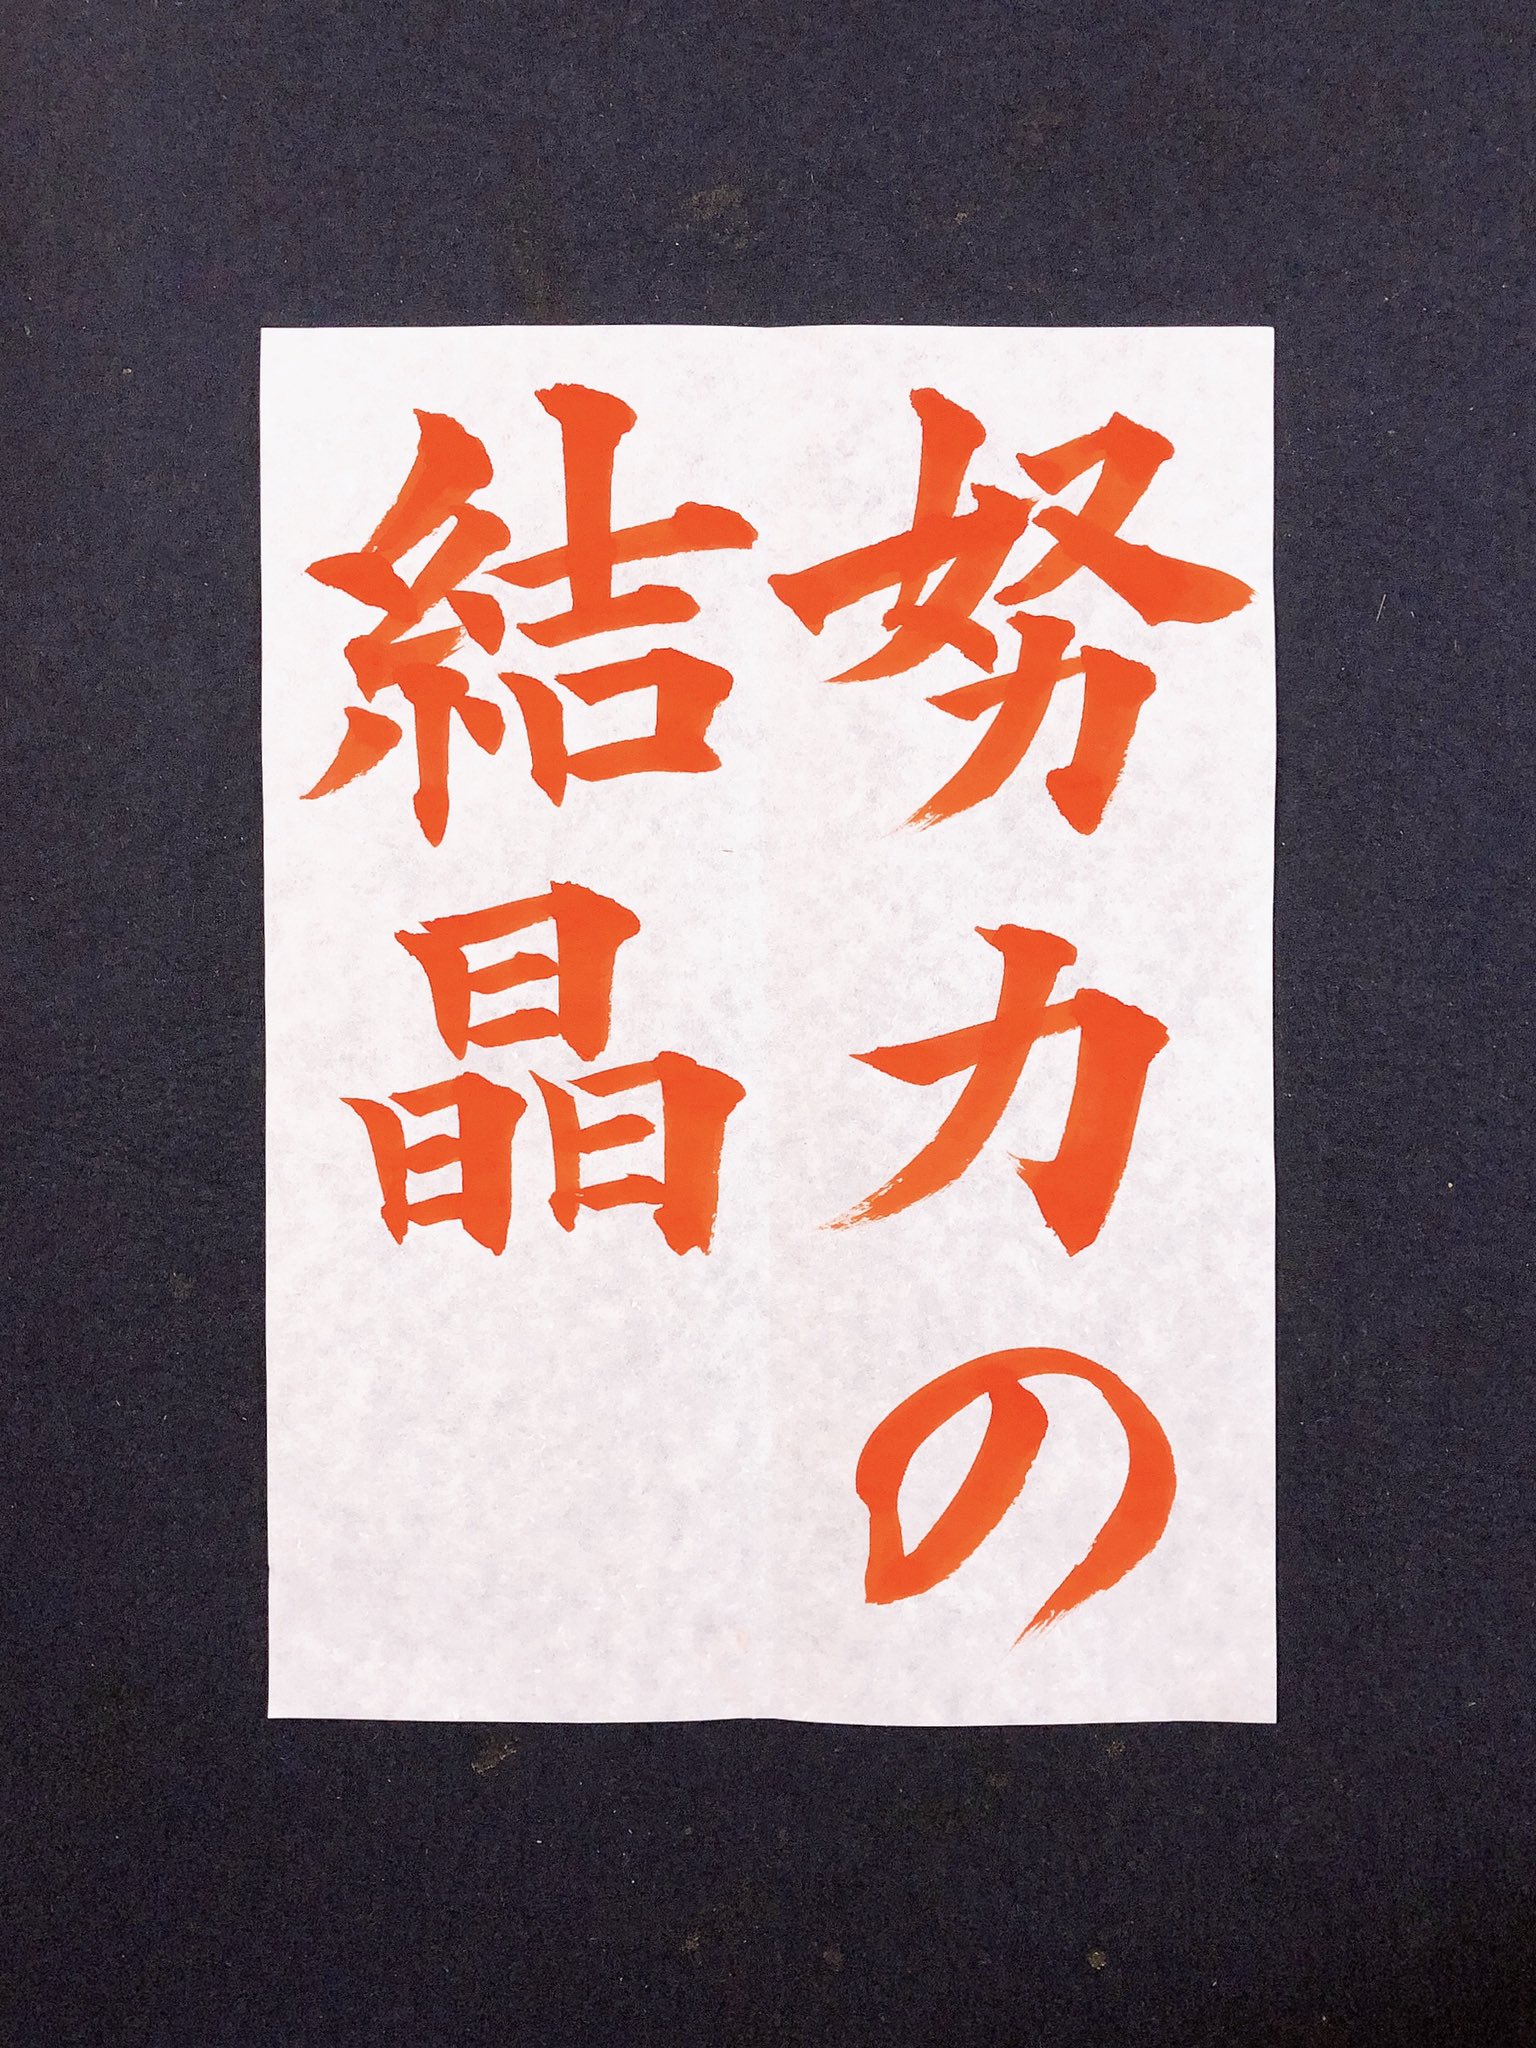 努力の
結晶